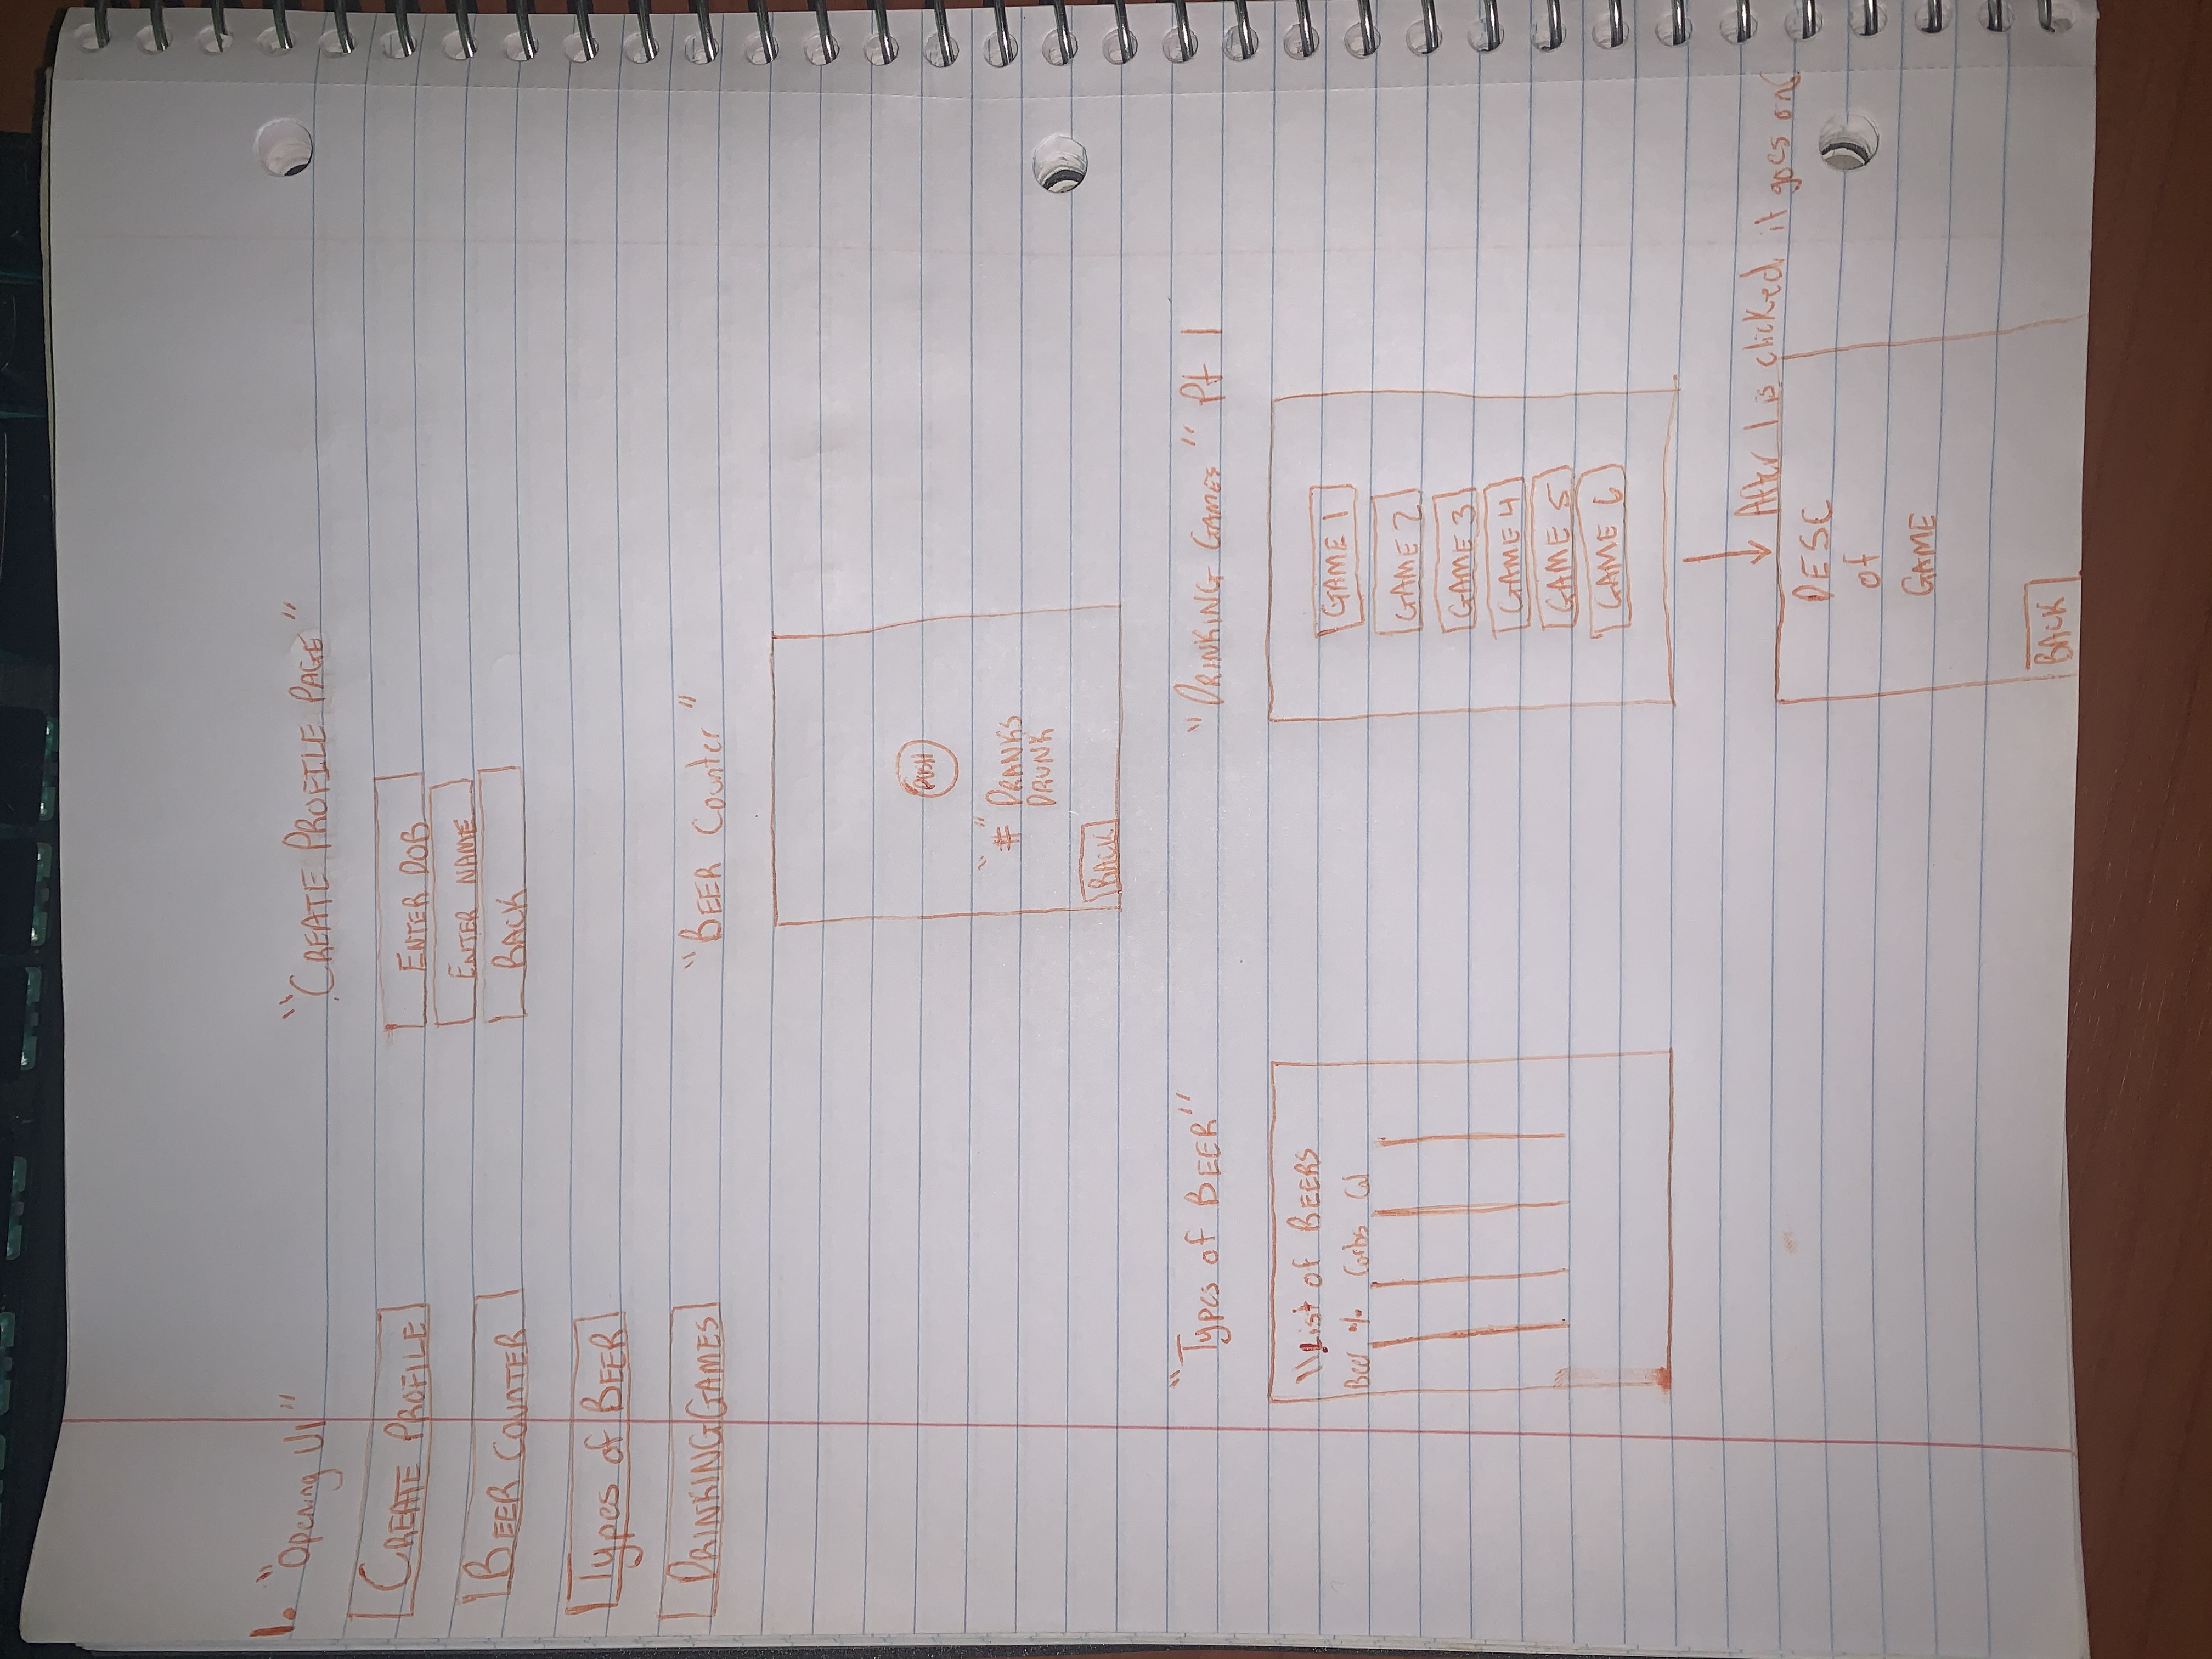 1. "Opening UI"
CREATE PROFILE
BEER COUNTER
Types of BEER
DRINKING GAMES
"CREATE PROFILE PAGE"
ENTER DOB
ENTER NAME
BACK
"BEER Counter"
PUSH
"#" DRANKS
DRUNK
BACK
"Types of BEER"
"List of BEERS
Beer % Carbs Cal
"DRINKING GAMES" Pt 1
GAME 1
GAME 2
GAME 3
GAME 4
GAME 5
GAME 6
After 1 is clicked it goes on
DESC
of
GAME
BACK